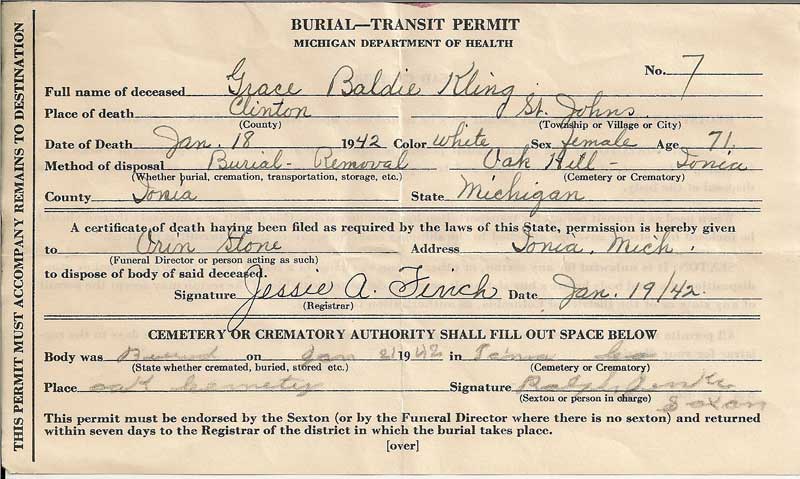 THIS PERMIT MUST ACCOMPANY REMAINS TO DESTINATION
BURIAL—TRANSIT PERMIT
MICHIGAN DEPARTMENT OF HEALTH
No. 7
Full name of deceased Grace Baldie Kling
Place of death Clinton St. Johns
(County) (Township or Village or City)
Date of Death Jan. 18 1942 Color White Sex female Age 71
Method of disposal Burial - Removal Oak Hill - Ionia
(Whether burial, cremation, transportation, storage, etc.) (Cemetery or Crematory)
County Ionia State Michigan
A certificate of death having been filed as required by the laws of this State, permission is hereby given
to Orin Stone Address Ionia, Mich.
(Funeral Director or person acting as such)
to dispose of body of said deceased.
Signature Jessie A. Finch Date Jan. 19/42.
(Registrar)
CEMETERY OR CREMATORY AUTHORITY SHALL FILL OUT SPACE BELOW
Body was on Jan 21 1942 in Ionia
(State whether cremated, buried, stored etc.) (Cemetery or Crematory)
Place oak Signature Ralph
(Sexton or person in charge)
This permit must be endorsed by the Sexton (or by the Funeral Director where there is no sexton) and returned
within seven days to the Registrar of the district in which the burial takes place.
[over]